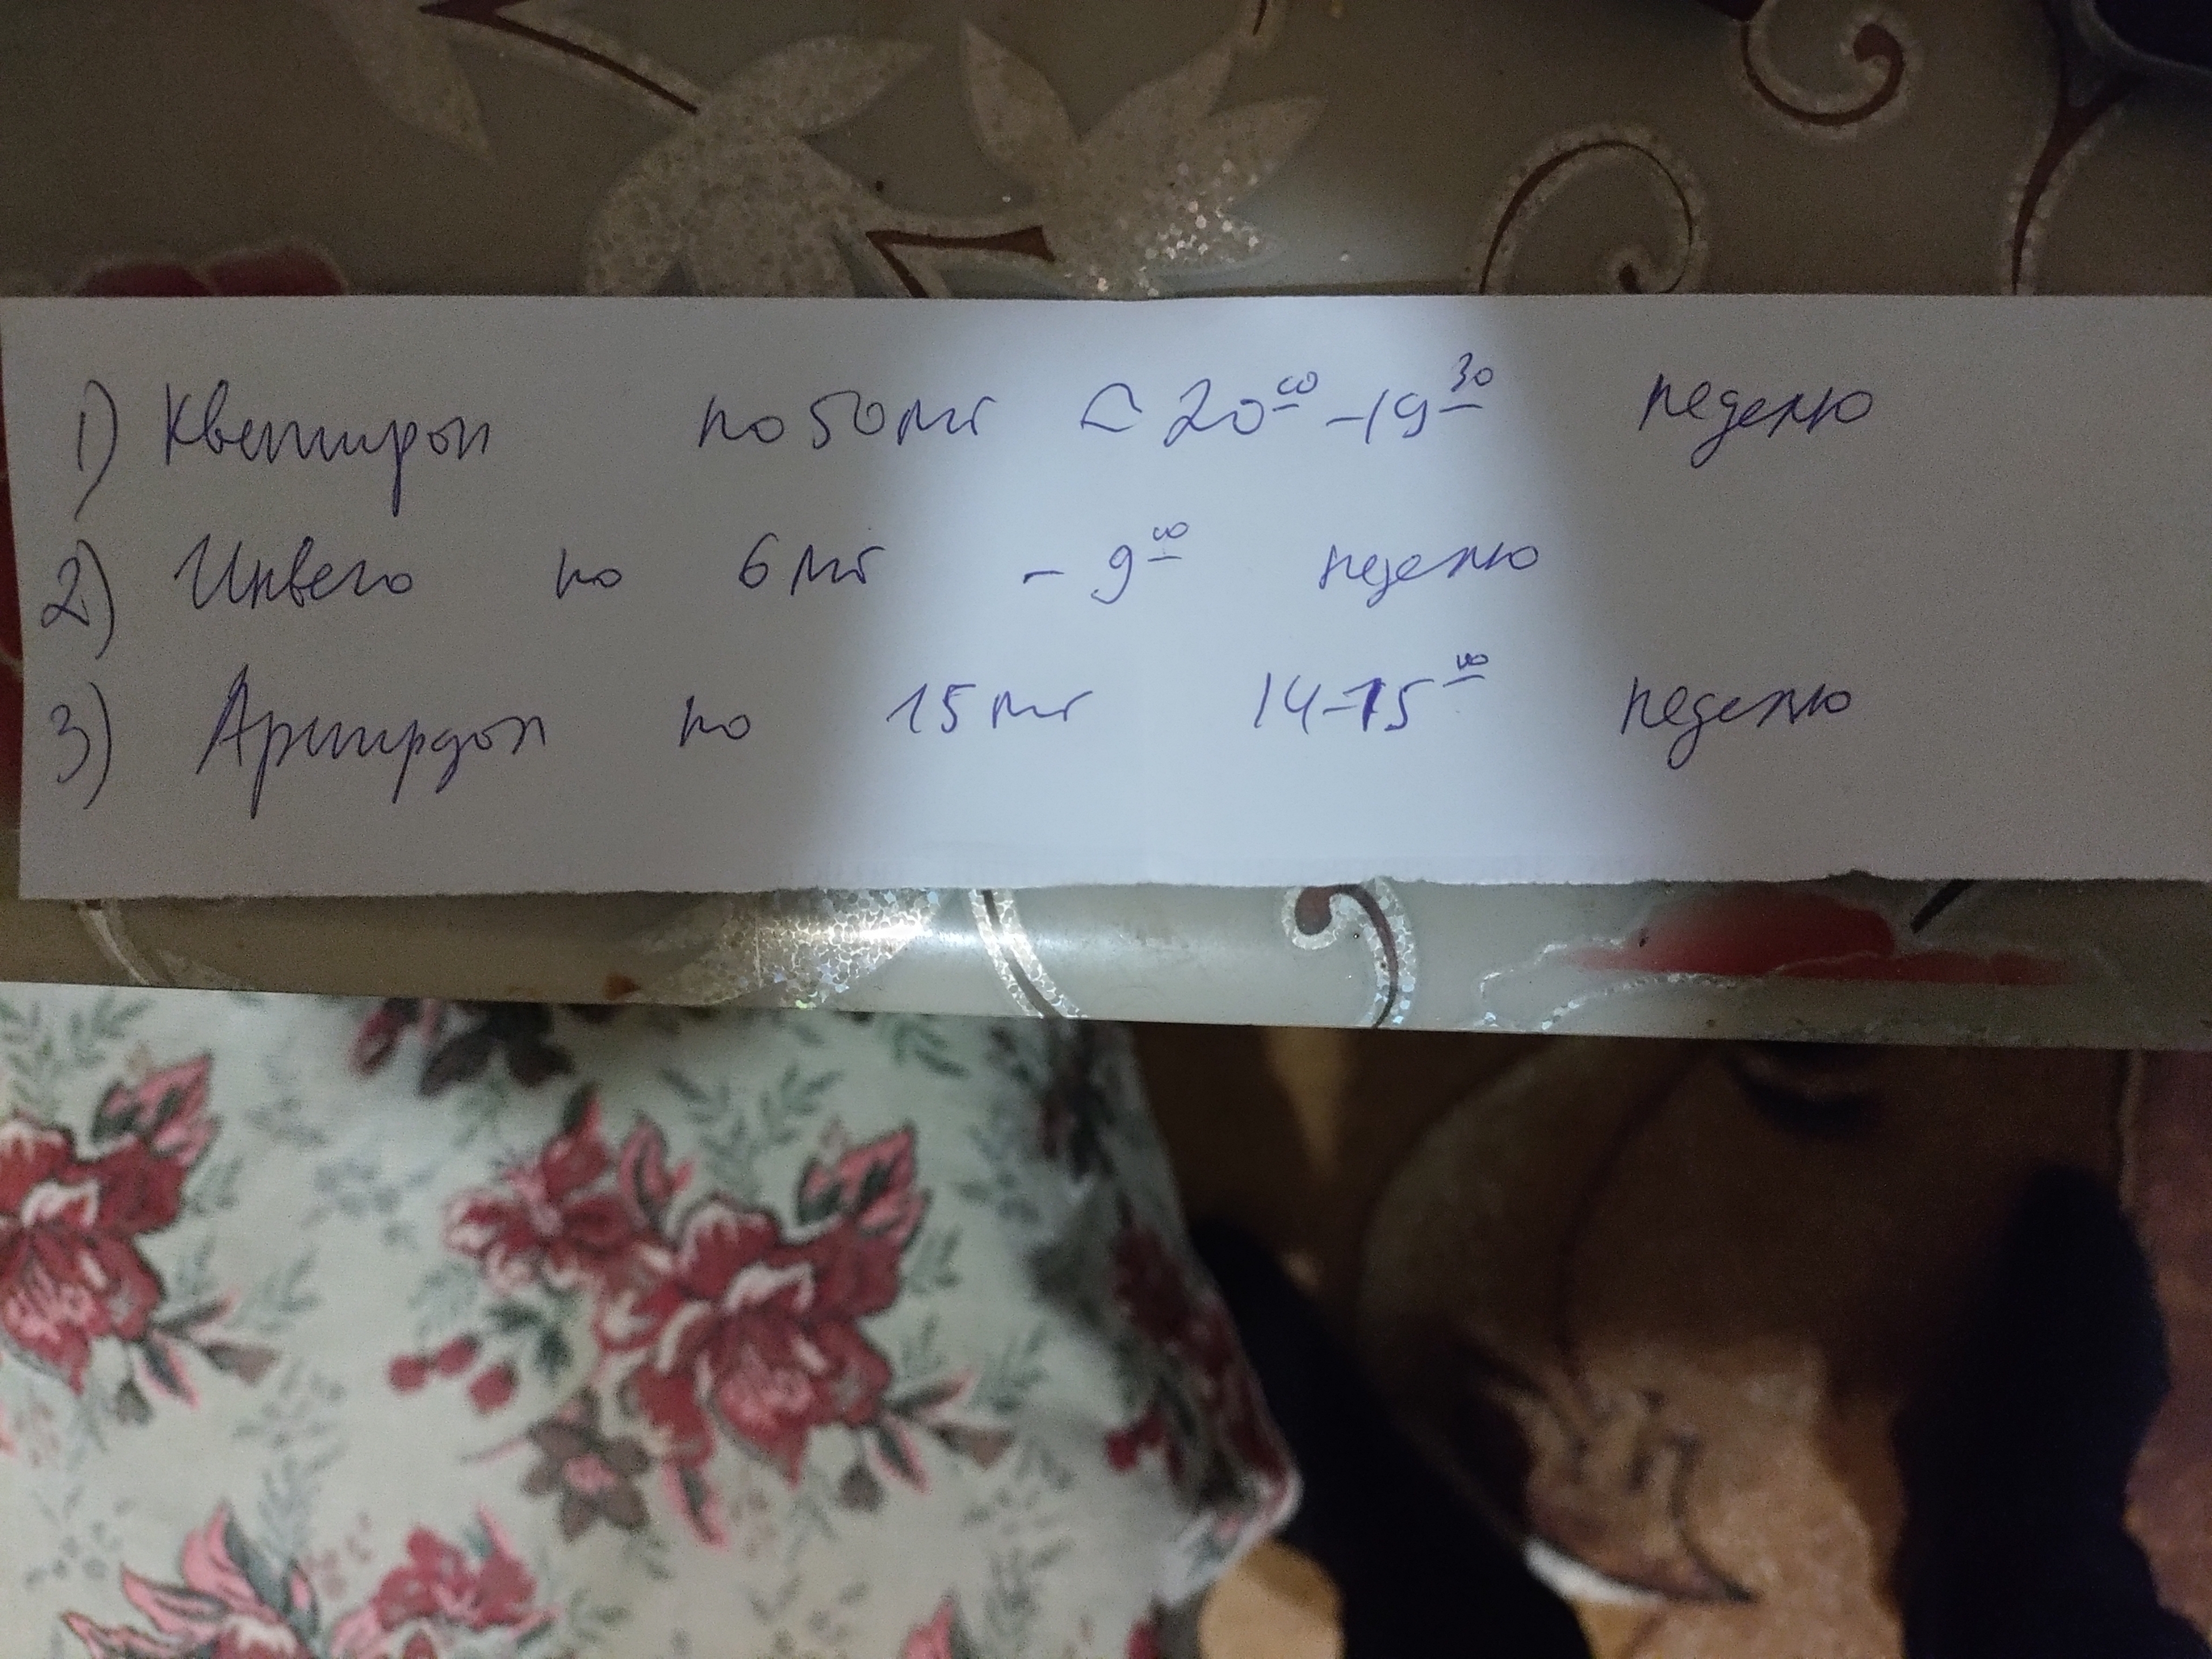 1) Кветирон по 50 мг ~ 20⁰⁰ - 19³⁰ неделю
2) Инвега по 6 мг - 9⁰⁰ неделю
3) по 15 мг 14-15⁰⁰ неделю